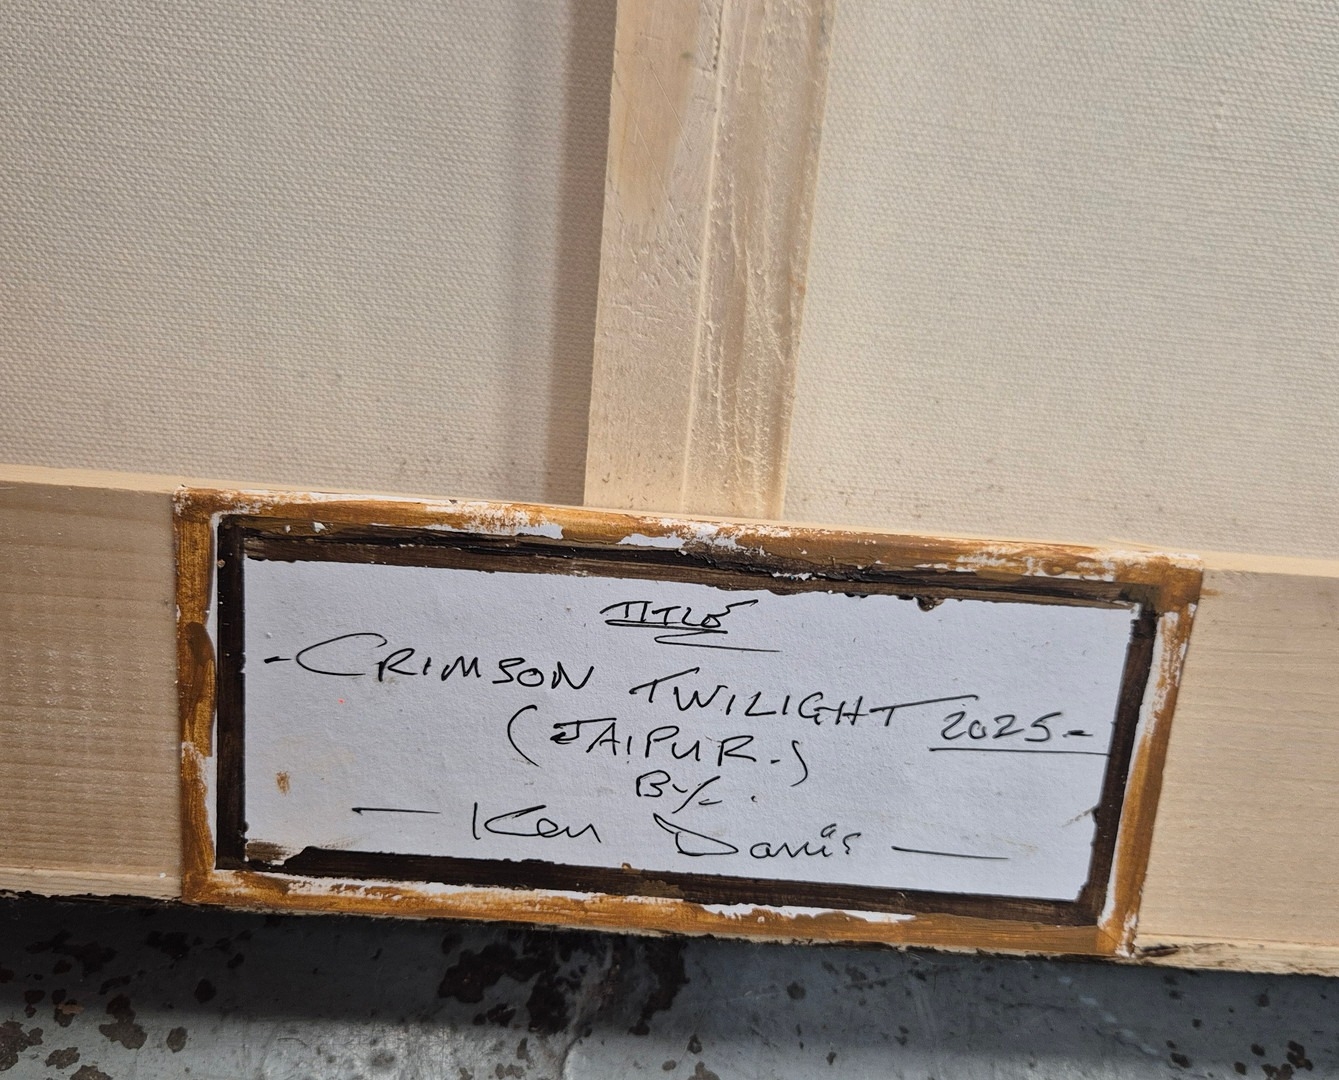 TITLE
- CRIMSON TWILIGHT 2025 -
(JAIPUR.)
BY/- .
— Ken Davis —